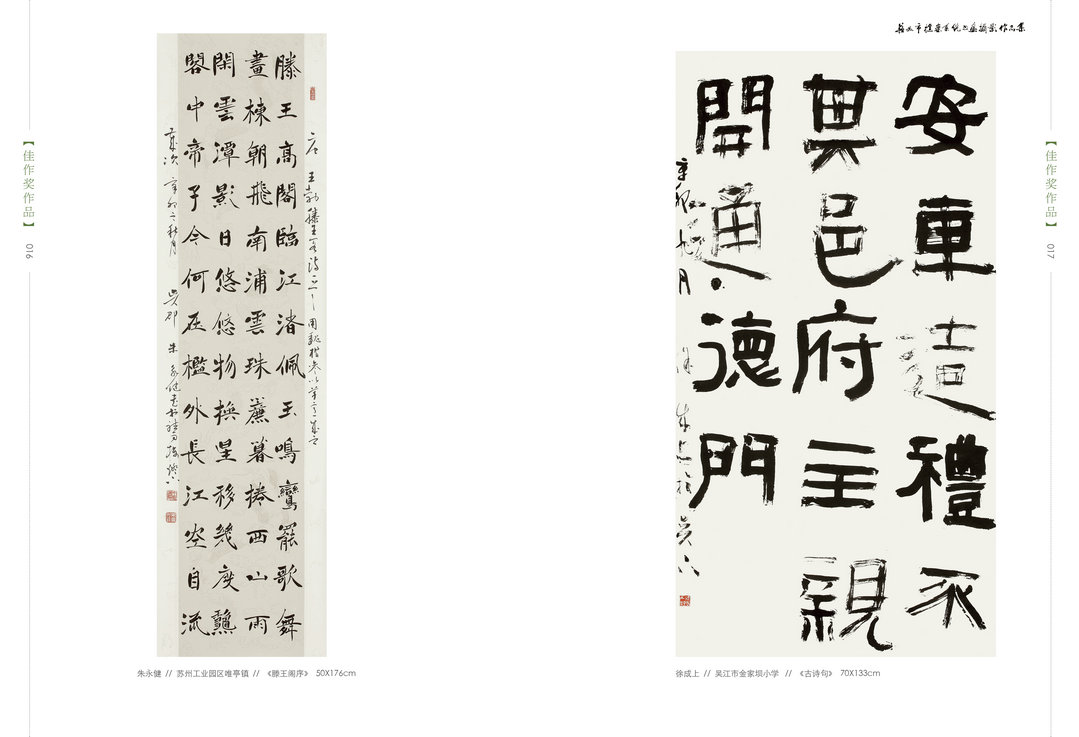 【佳作奖作品】
016
唐 王勃滕王
滕王高閣臨江渚佩玉鳴鸞罷歌舞
畫棟朝飛南浦雲珠簾暮捲西山雨
閑雲潭影日悠悠物換星移幾度龝
閣中帝子今何在檻外長江空自流
歲次辛卯之秋月 吳郡 朱永健
朱永健 // 苏州工业园区唯亭镇 // 《滕王阁序》 50X176cm
吴江市檀乘系统书画摄影作品集
【佳作奖作品】
017
安車造禮不
其邑府主親
開通德門
辛卯九月
徐成上 // 吴江市金家坝小学 // 《古诗句》 70X133cm